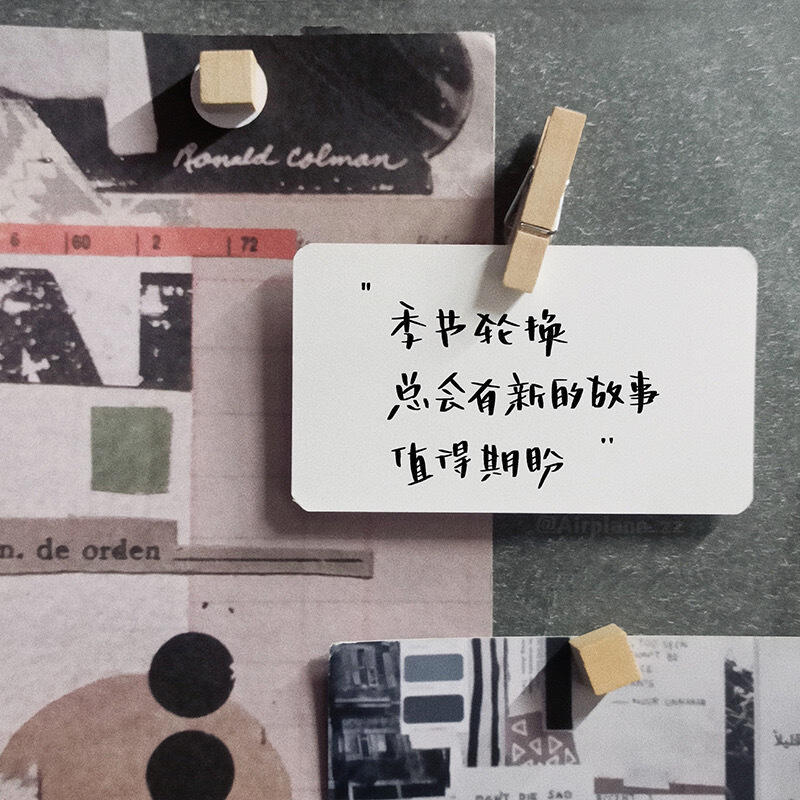 Ronald Colman
6 | 60 | 2 | 72
"季节轮换
总会有新的故事
值得期盼"
n. de orden
@Airplane_zz
DON'T DIE SAD